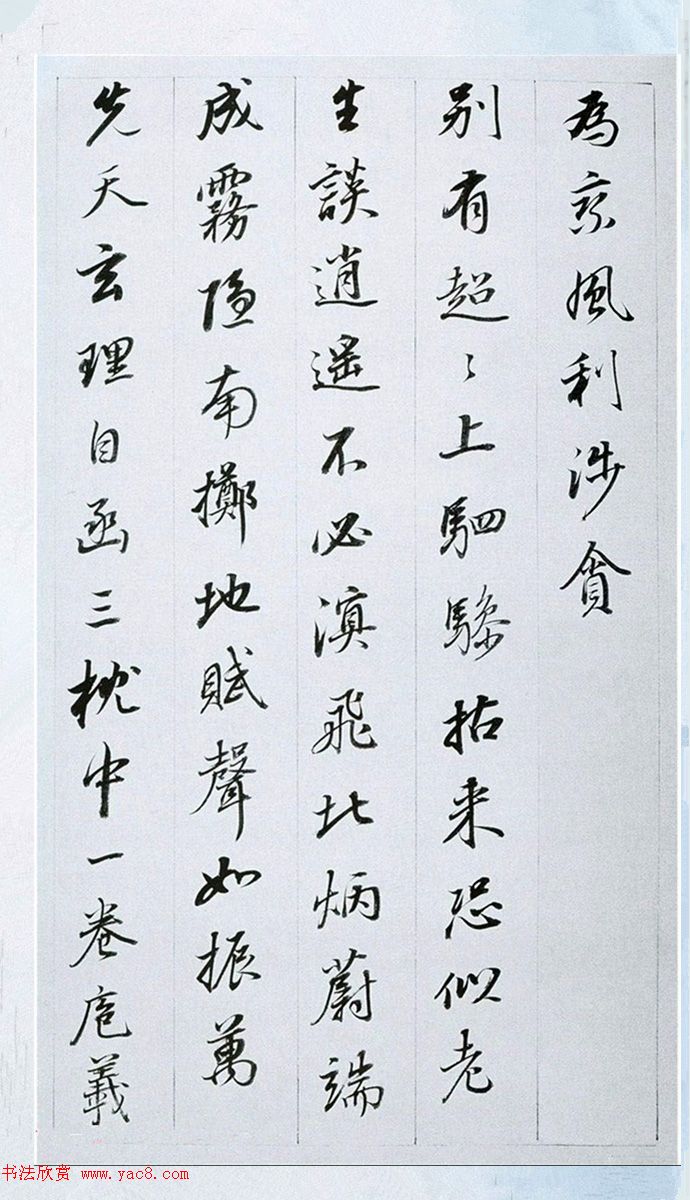 為乘風利涉貪
别有超〻上駟驂拈来恐似老
生談逍遥不必溟飛北炳蔚端
成霧隐南擲地賦聲如振萬
先天玄理自函三枕中一卷庖羲
书法欣赏 www.yac8.com